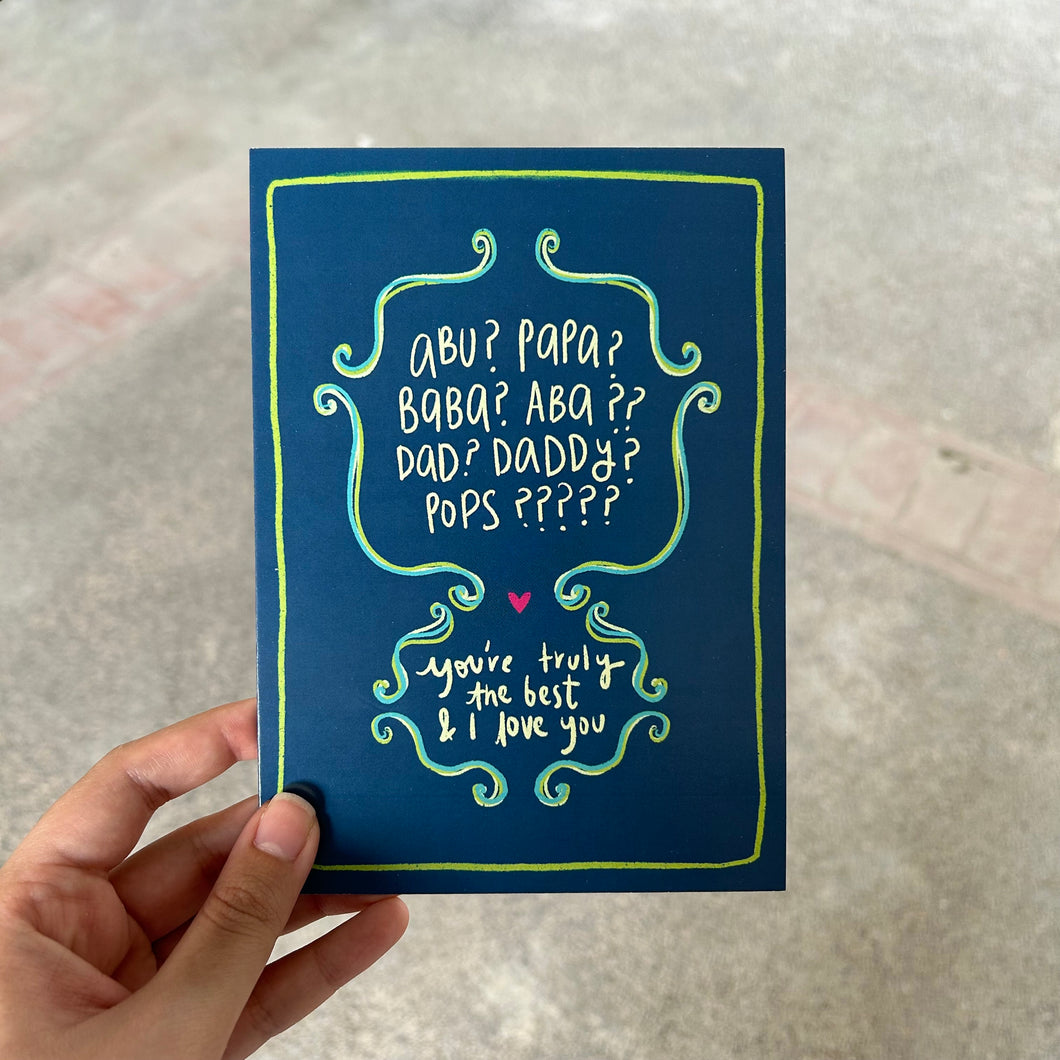 aBU? PaPa?
BaBa? ABa ??
DaD? DaDDy?
POPS ?????
you're truly
the best
& I love you